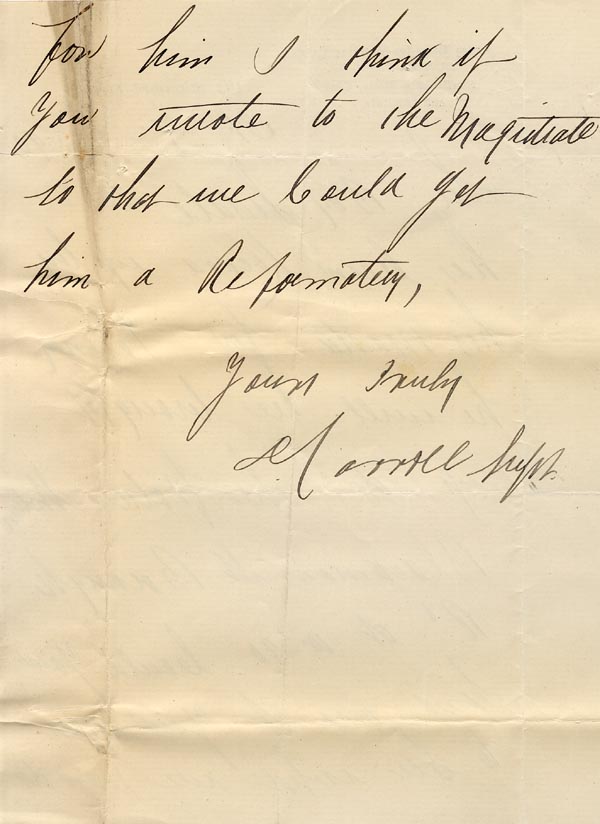 for him I think if
you wrote to the Magistrate
so that we Could get
him a Reformatory,
Yours Truly
Carroll Supt.